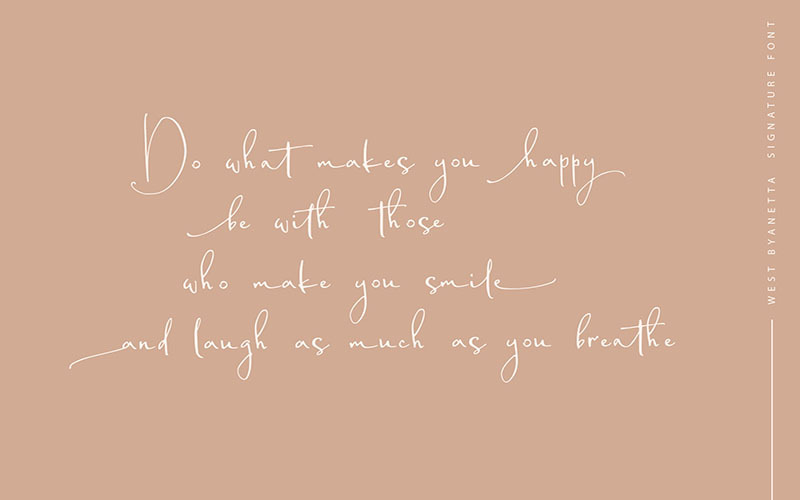 Do what makes you happy
be with those
who make you smile
and laugh as much as you breathe
WEST BYANETTA SIGNATURE FONT